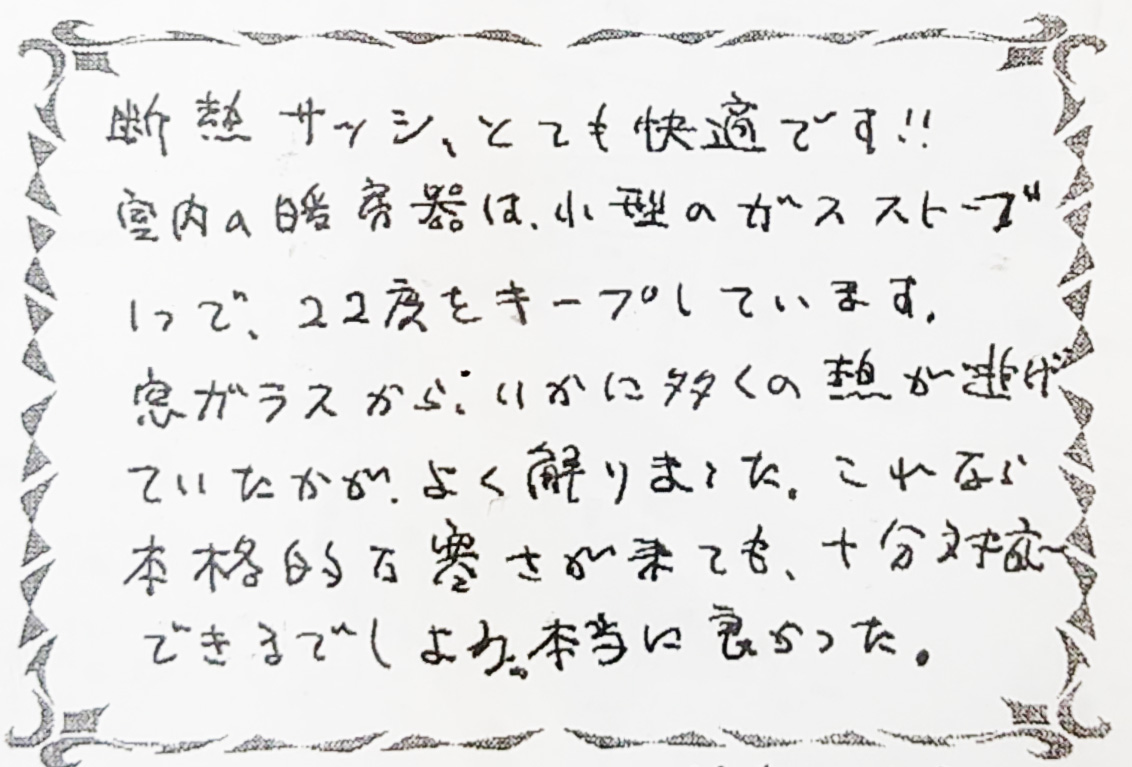 断熱サッシ、とても快適です!!
室内の暖房器は、小型のガスストーブ
1つで、22度をキープしています。
窓ガラスから、いかに多くの熱が逃げ
ていたかが、よく解りました。これなら
本格的な寒さが来ても、十分対応
できるでしょね。本当に良かった。